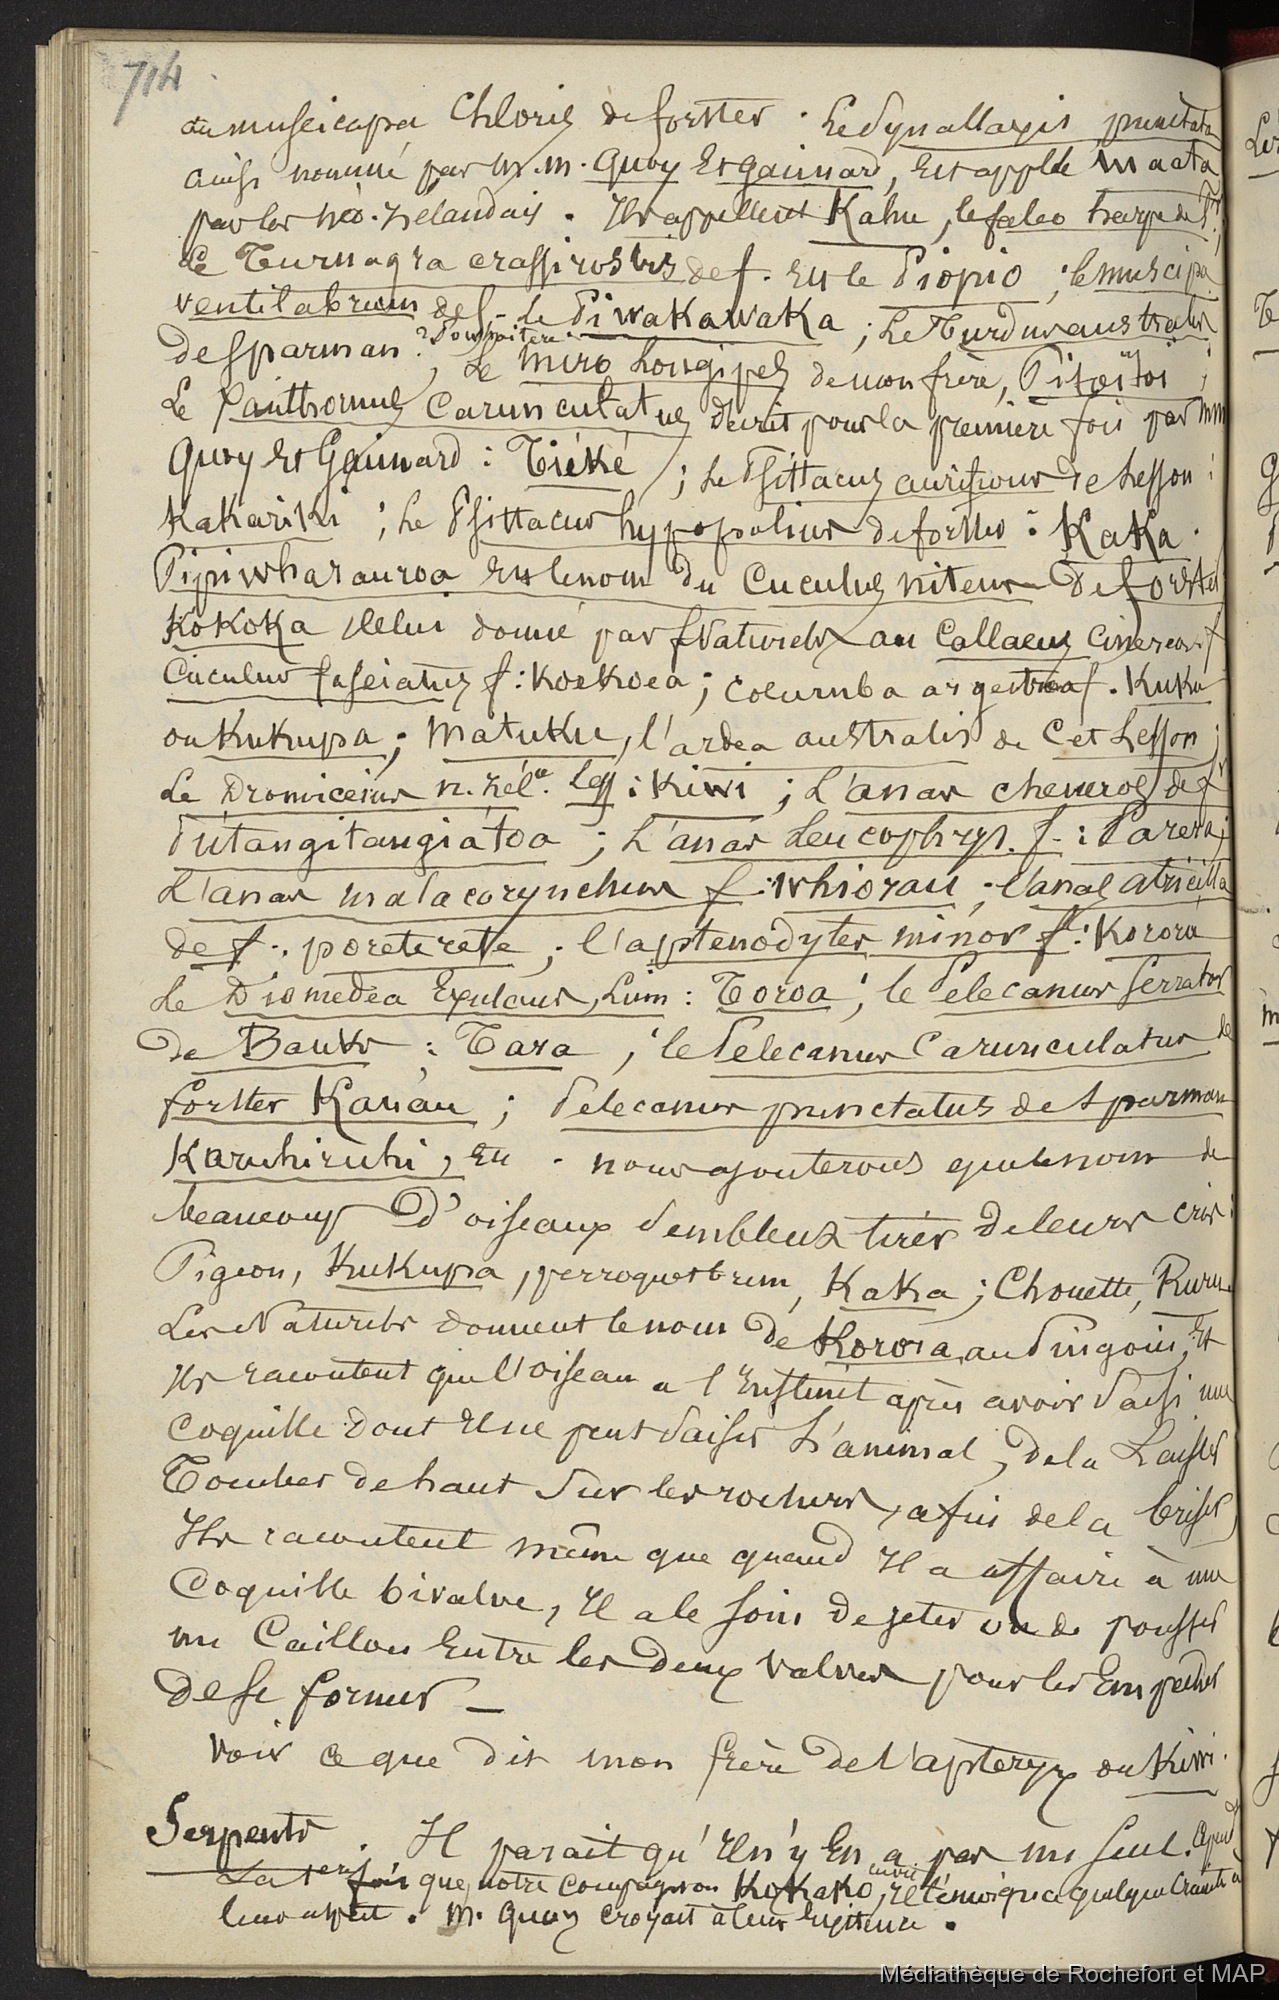 714
au muscicapa Chloris de forster. Le Synallaxis punctata
ainsi nommé par m.m. Quoy Et gaimard, Est appelé Maata
par les néo-Zélandais. Ils appellent Kahu, le falco harpe de
le Turnagra crassirostris de f. Est le Piopio ; le muscipa
ventilabrum de f. le PiwaKawaKa ; Le Turdus australis
de Sparman :
, Le miro Longipes de mon frère, Pitoïtoi ;
Le Xanthornus Carunculatus décrit pour la première fois par mm
Quoy Et Gaimard : Tiéké ; Le Psittacus aurifrons de Lesson :
KaKariki ; Le Psittacus hypopolius de forster : KaKa.
Pipiwharauroa Est le nom du Cuculus nitens de forster
KoKoKa celui donné par naturels au Callaeus Cinereous f
Cuculus fasciatus f : KoeKoea ; columba argetraea f. KuKu
ou KuKupa ; MatuKu, l'ardea australis de C et Lesson ;
Le Dromiceius n. zél. Less : Kiwi ; L'anas cheneros de f
Putangitangiatoa ; L'anas Leucophrys. f. : Parera ;
L'anas malacorynchus f : Whiorau ; l'anas atricilla
de f. poreterete ; l'aptenodytes minor f : Korora
Le Diomedea Exulans, Linn : Toroa ; le Pelecanus Serrator
de Banks : Tara ; le Pelecanus Carunculatus de
forster Karuau ; Pelecanus punctatus de Sparman
Karuhiruhi, Et. nous ajouterons que le nom de
beaucoup d'oiseaux Semblent tirés de leurs cris :
Pigeon, KuKupa, perroquet brun, KaKa ; Chouette, Ruru
Les Naturels donnent le nom de Korora au Pingoin, Et
Ils racontent que l'oiseau a l'Instinct après avoir Saisi une
Coquille dont Il ne peut Saisir L'animal, de la Laisser
Tomber de haut Sur les rochers, afin de la briser,
Ils racontent même que quand Il a affaire à une
Coquille bivalve, Il a le soin de jeter ou de pousser
un Caillou Entre les deux Valves pour les Empêcher
de se fermer —
Voir ce que dit mon frère de l'apteryx ou Kiwi.
Serpents. Il parait qu'Il n'y En a pas un seul.
La 1ere fois que notre compagnon KoKaKo , Il témoigna quelque Crainte à
leur aspect. M. Quoy croyait à leur Existence.
Médiathèque de Rochefort et MAP